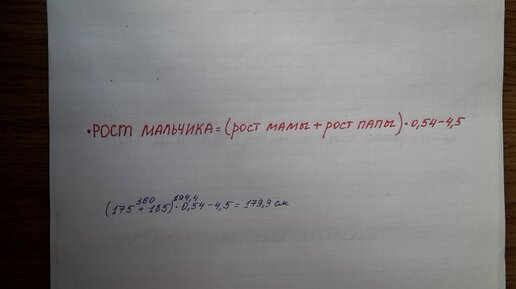 • РОСТ МАЛЬЧИКА = (РОСТ МАМЫ + РОСТ ПАПЫ) · 0,54 - 4,5
360 194,4
(175 + 185) · 0,54 - 4,5 = 179,9 см